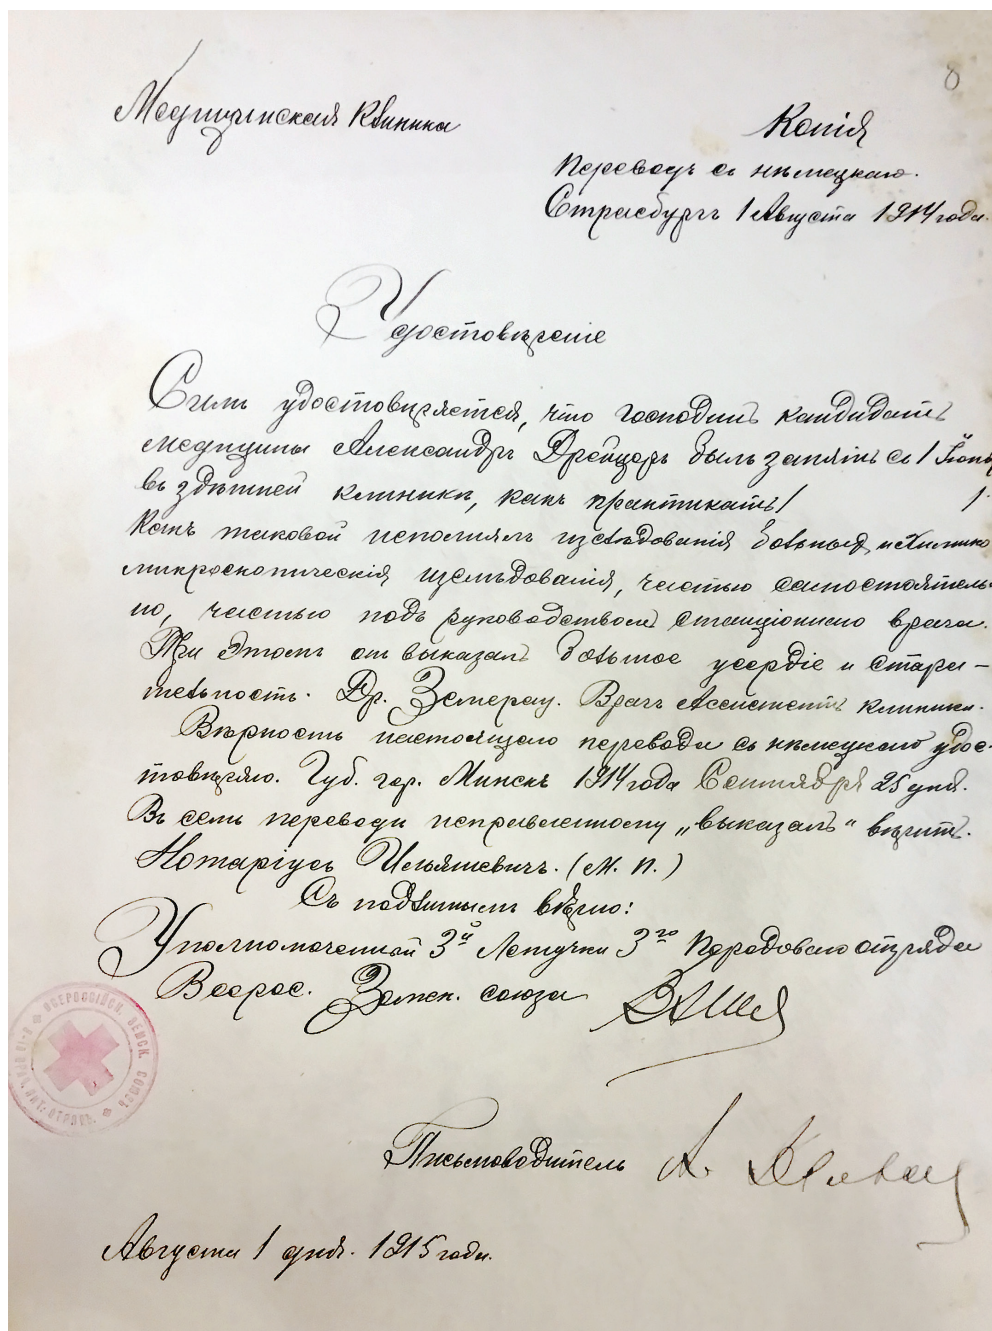 8
Медицинская Клиника
Копія
Переводъ съ нѣмецкаго.
Страсбургъ 1 Августа 1914 года.
Удостовѣреніе
Симъ удостовѣряется, что господинъ кандидатъ
медицины Александръ Дрейцеръ былъ занятъ съ 1 Іюня
въ здѣшней клиникѣ, какъ практикантъ/
Какъ таковой исполнялъ изслѣдованія больныхъ и химико
микроскопическія изслѣдованія, частью самостоятель-
но, частью подъ руководствомъ стаціоннаго врача.
При этомъ он выказалъ большое усердіе и стара-
тельность. Др. Земерау. Врачъ Ассистентъ клиники.
Вѣрность настоящаго перевода съ нѣмецкаго удос-
товѣряю. Губ. гор. Минскъ 1914 года Сентября 25 дня.
Въ семъ переводѣ исправленному „выказалъ“ вѣрить.
Нотаріусъ Ильяшевичъ. (М. П.)
Съ подлиннымъ вѣрно:
Уполномоченный 3й Летучки 3го Передоваго отряда
Всерос. Земск. союза
ВСЕРОССІЙСК. ЗЕМСК. СОЮЗЪ
Письмоводитель А.
Августа 1 дня. 1915 года.